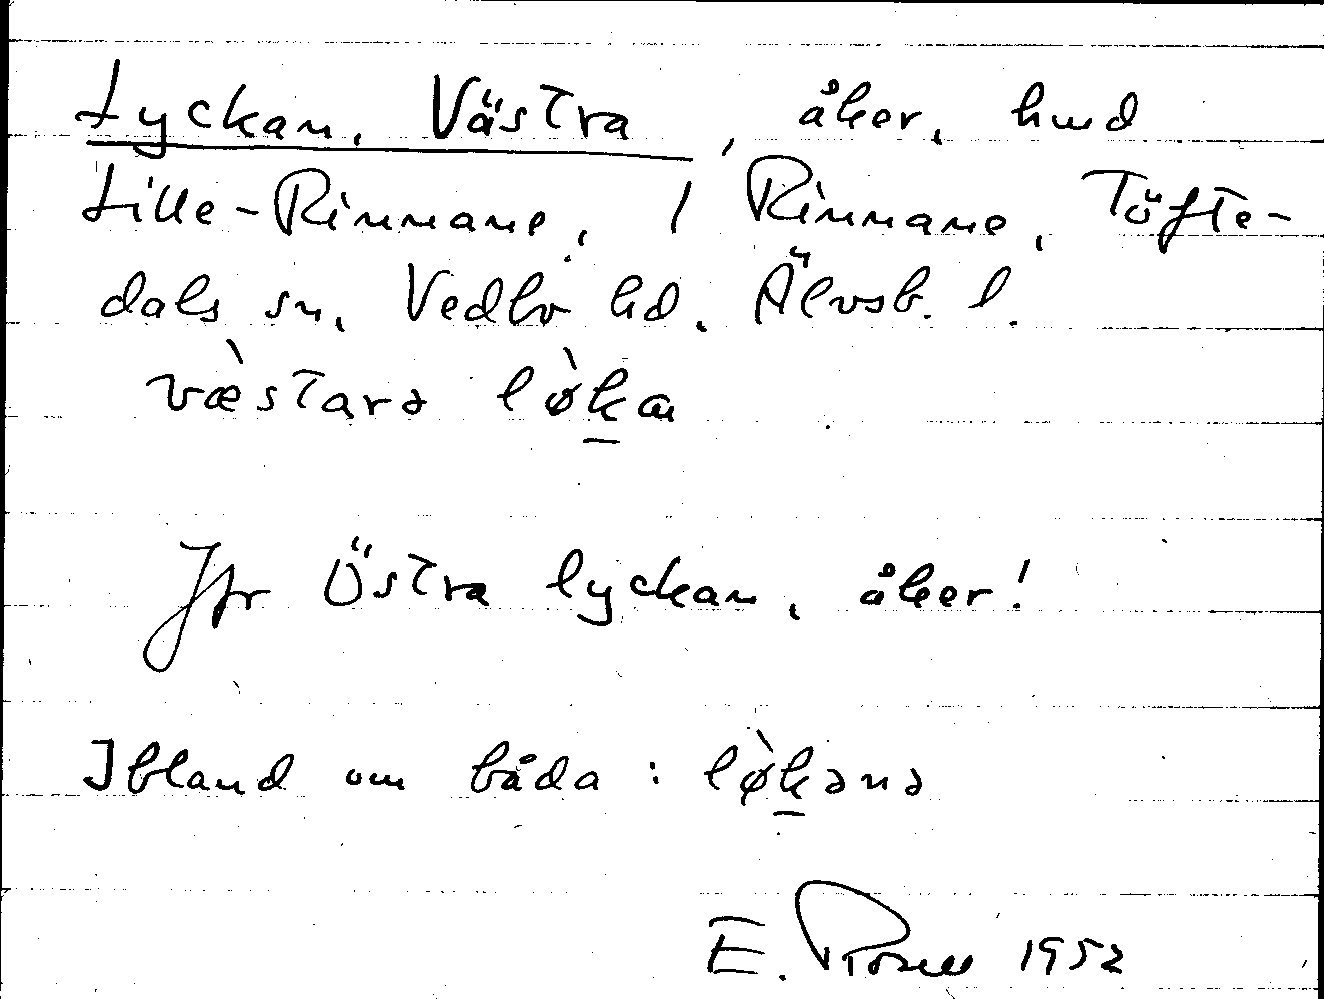 Lyckan, Västra, åker, hmd
Lille-Rinnane, 1 Rinnane, Töfte-
dals sn, Vedbo hd. Älvsb. l.
væ̀starə lø̀k̲an
Jfr Östra lyckan, åker!
Ibland om båda: lø̀k̲ənə
E. Rosell 1952